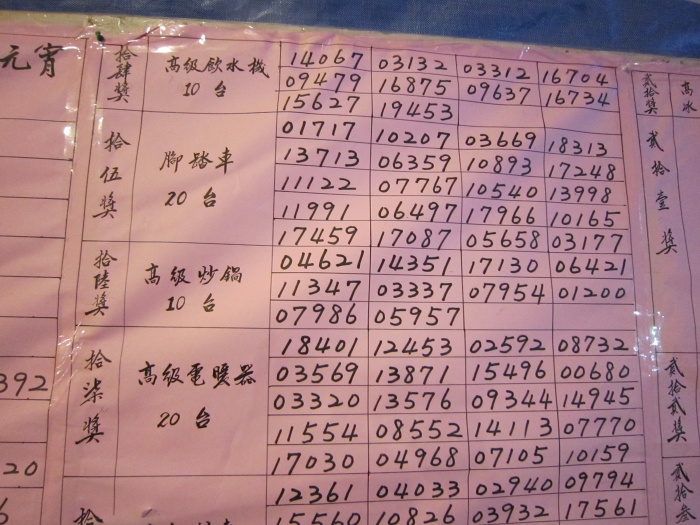 元宵
392
20
拾肆獎
高級飲水機
10 台
14067 03132 03312 16704
09479 16875 09637 16734
15627 19453
拾伍獎
腳踏車
20 台
01717 10207 03669 18313
13713 06359 10893 17248
11122 07767 10540 13998
11991 06497 17966 10165
17459 17087 05658 03177
拾陸獎
高級炒鍋
10 台
04621 14351 17130 06421
11347 03337 07954 01200
07986 05957
拾柒獎
高級電暖器
20 台
18401 12453 02592 08732
03569 13871 15496 00680
03320 13576 09344 14945
11554 08552 14113 07770
17030 04968 07105 10159
拾
12361 04033 02940 09794
15560 10826 03932 17561
貳拾獎
高
冰
貳拾壹獎
貳拾貳獎
貳拾叁